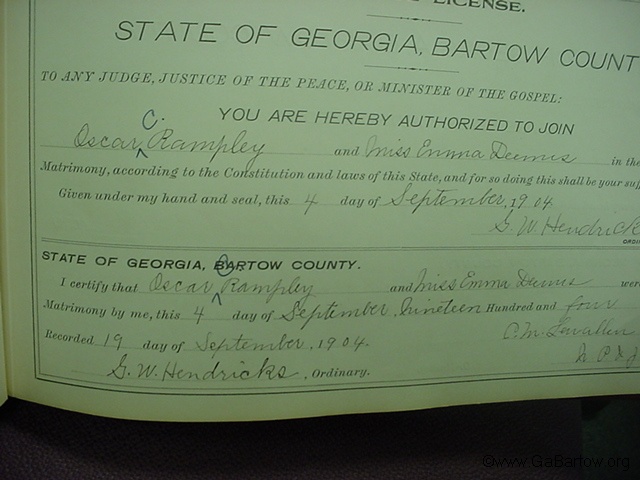 LICENSE.
STATE OF GEORGIA, BARTOW COUNT
TO ANY JUDGE, JUSTICE OF THE PEACE, OR MINISTER OF THE GOSPEL:
YOU ARE HEREBY AUTHORIZED TO JOIN
Oscar C. Rampley and Miss Emma in the
Matrimony, according to the Constitution and laws of this State, and for so doing this shall be your suf
Given under my hand and seal, this 4 day of September, 1904
G. W. Hendrick
ORDIN
STATE OF GEORGIA, BARTOW COUNTY.
I certify that Oscar C. Rampley and Miss Emma were
Matrimony by me, this 4 day of September, Nineteen Hundred and four
C. M.
Recorded 19 day of September, 1904.
N. P. & J
G. W. Hendricks, Ordinary.
©www.GaBartow.org